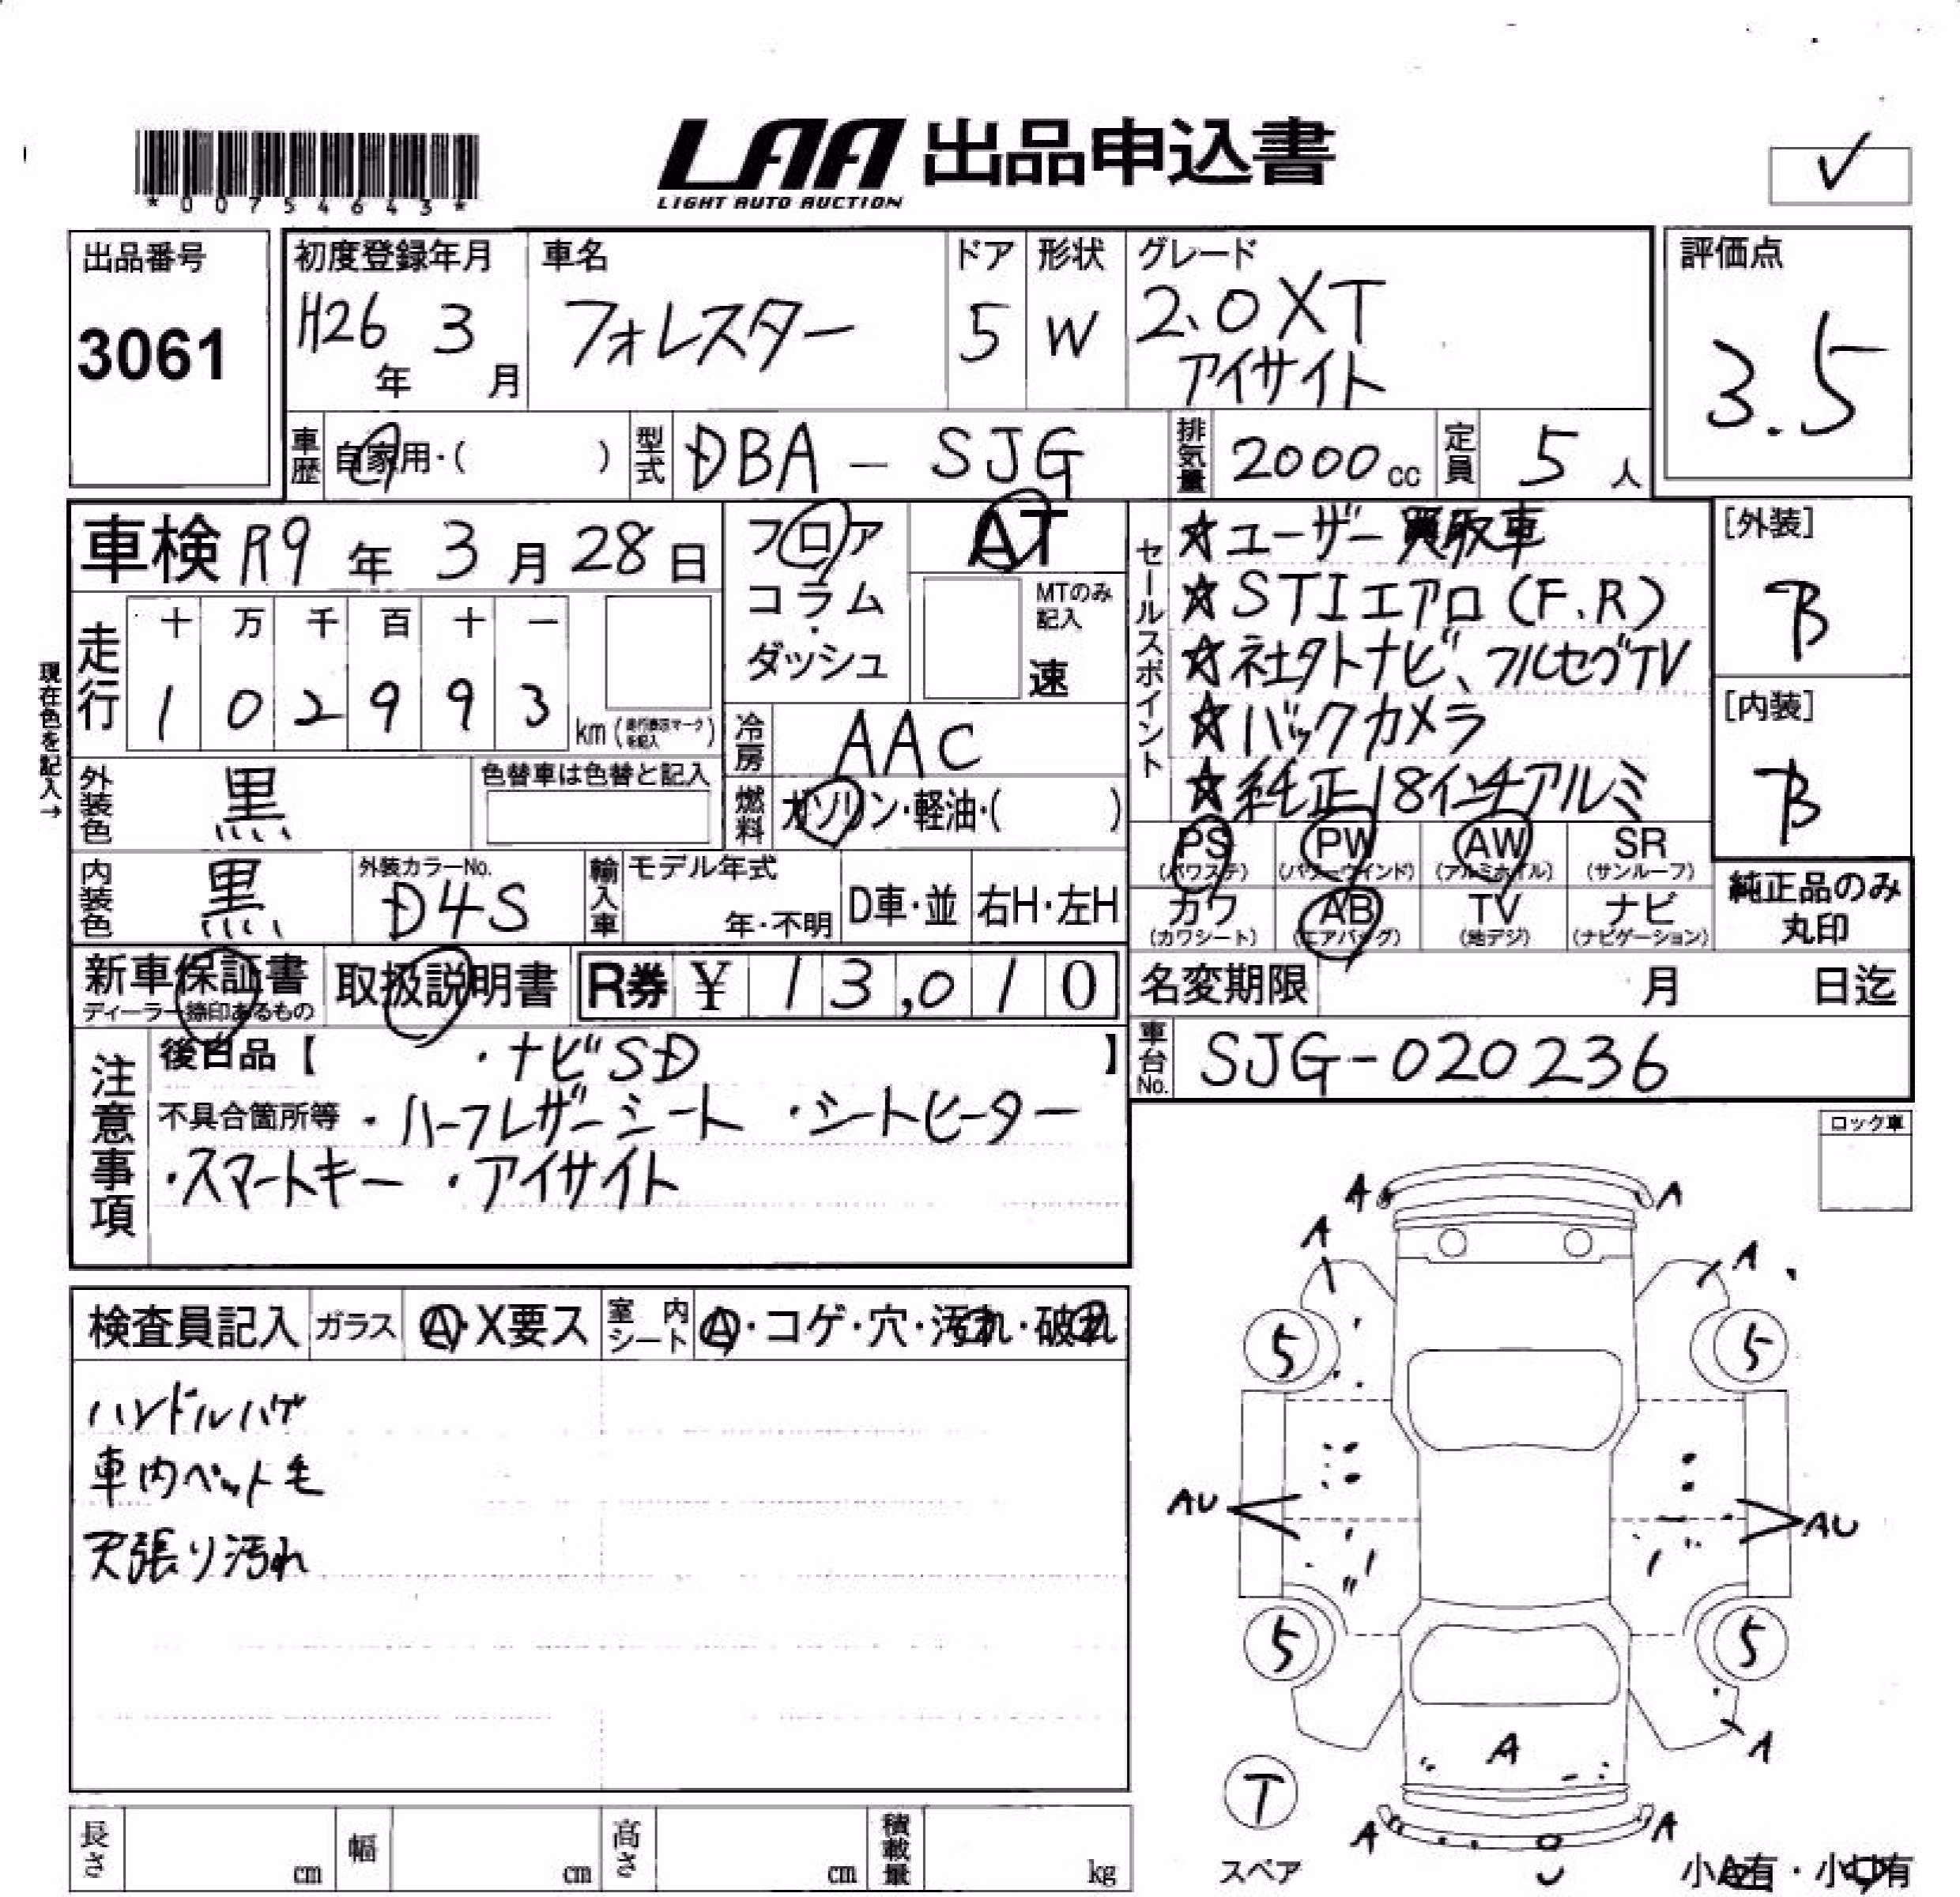 *00754643*
LAA 出品申込書
LIGHT AUTO AUCTION
✓
出品番号
3061
初度登録年月
H26年 3月
車名
フォレスター
ドア
5
形状
W
グレード
2.0XT
アイサイト
評価点
3.5
車歴
自家用・( )
型式
DBA-SJG
排気量
2000cc
定員
5人
車検 R9年 3月 28日
走行
十 万 千 百 十 一
1 0 2 9 9 3
km(走行表示マークを記入)
現在色を記入→
外装色
黒
色替車は色替と記入
内装色
黒
外装カラーNo.
D4S
輸入車
モデル年式
年・不明
D車・並
右H・左H
フロア
コラム
・
ダッシュ
AT
MTのみ
記入
速
冷房
AAC
燃料
ガソリン・軽油・( )
セールスポイント
☆ユーザー買取車
☆STIエアロ(F.R)
☆社外ナビ、フルセグTV
☆バックカメラ
☆純正18インチアルミ
[外装]
B
[内装]
B
PS
(パワステ)
PW
(パワーウインド)
AW
(アルミホイル)
SR
(サンルーフ)
カワ
(カワシート)
AB
(エアバッグ)
TV
(地デジ)
ナビ
(ナビゲーション)
純正品のみ
丸印
新車保証書
ディーラー捺印あるもの
取扱説明書
R券 ¥ 13,010
名変期限 月 日迄
車台No.
SJG-020236
注意事項
後日品【 ・ナビSD 】
不具合箇所等 ・ハーフレザーシート ・シートヒーター
・スマートキー ・アイサイト
ロック車
検査員記入
ガラス
A・X要ス
室内
シート
A・コゲ・穴・汚れ・破れ
ハンドルハゲ
車内ペット毛
天張り汚れ
A A
A A
5 5
AU AU
5 5
A A
T
スペア
A A
U
小A有・小U有
長さ cm
幅 cm
高さ cm
積載量 kg